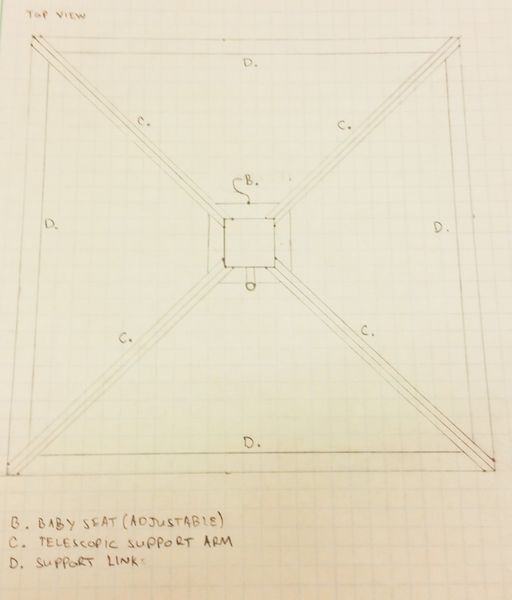 TOP VIEW
D.
C.
C.
B.
D.
D.
C.
C.
D.
B. BABY SEAT (ADJUSTABLE)
C. TELESCOPIC SUPPORT ARM
D. SUPPORT LINKS